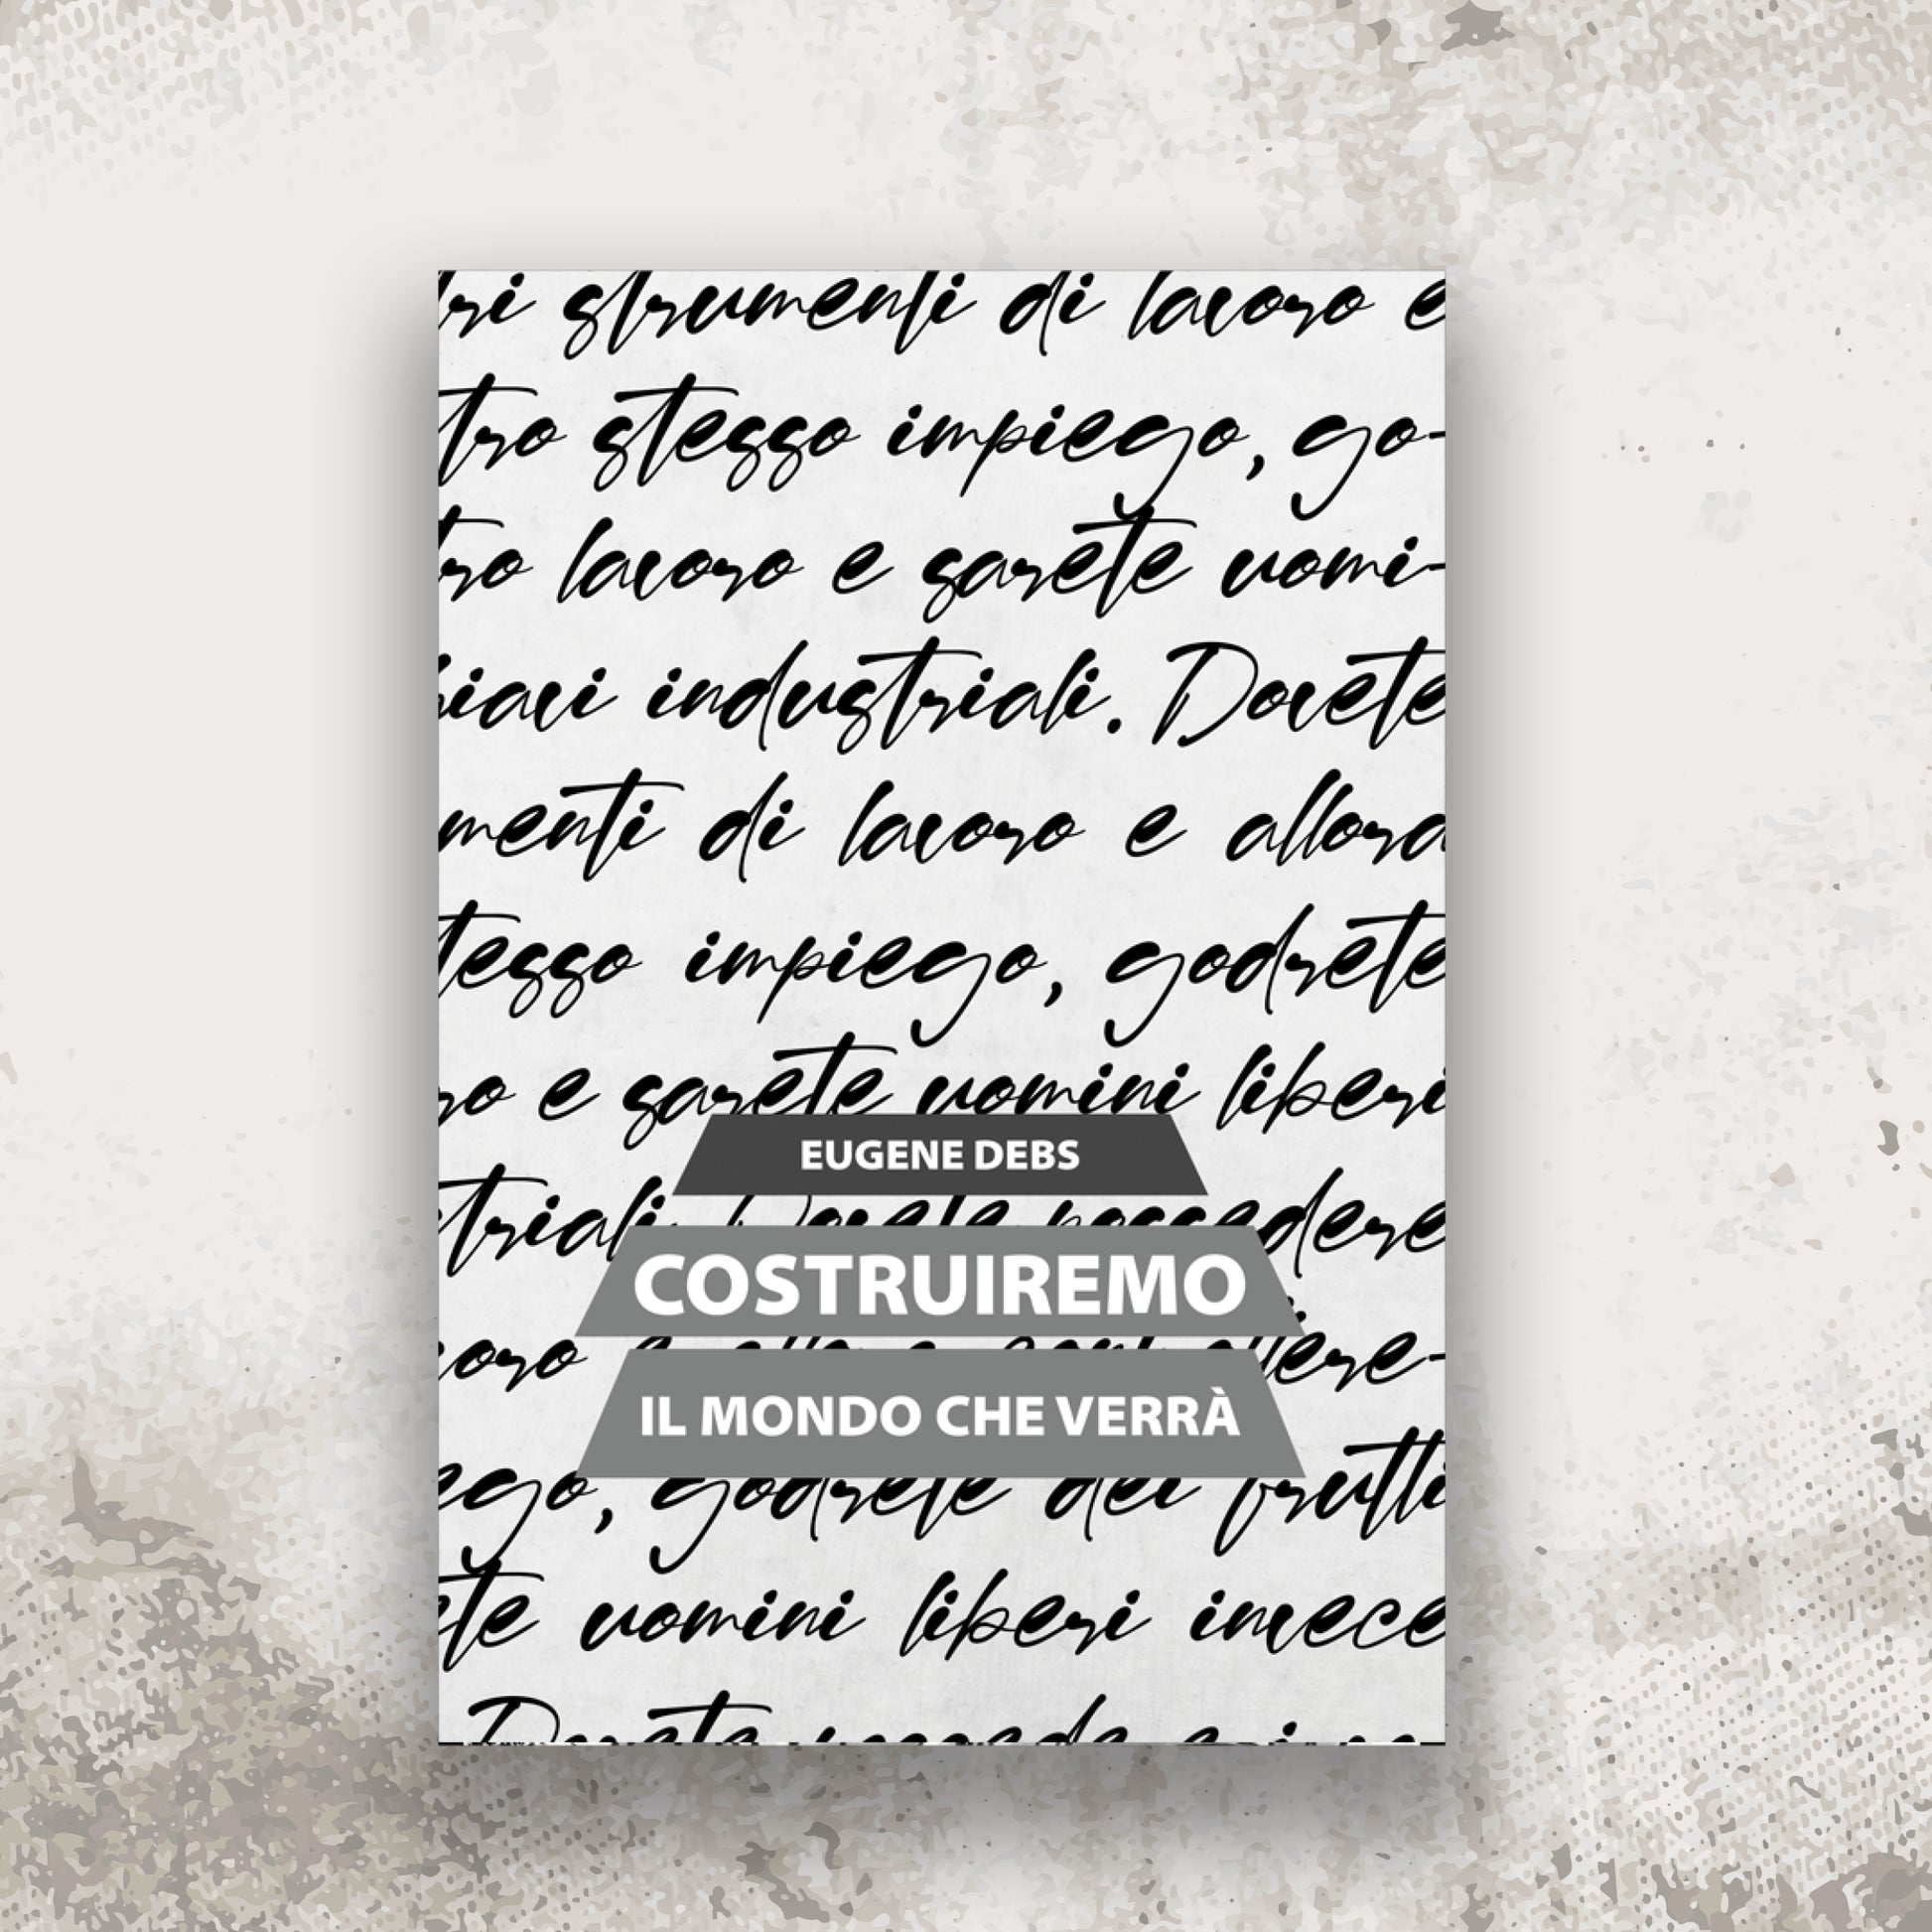 tri strumenti di lavoro e
tro stesso impiego, go-
tro lavoro e sarete uomi-
hiavi industriali. Dovete
menti di lavoro e allora
tesso impiego, godrete
ro e sarete uomini liberi
EUGENE DEBS
striali. Dovete possedere
COSTRUIREMO
voro e allora controllere-
IL MONDO CHE VERRÀ
ego, godrete dei frutti
ete uomini liberi invece
Dovete